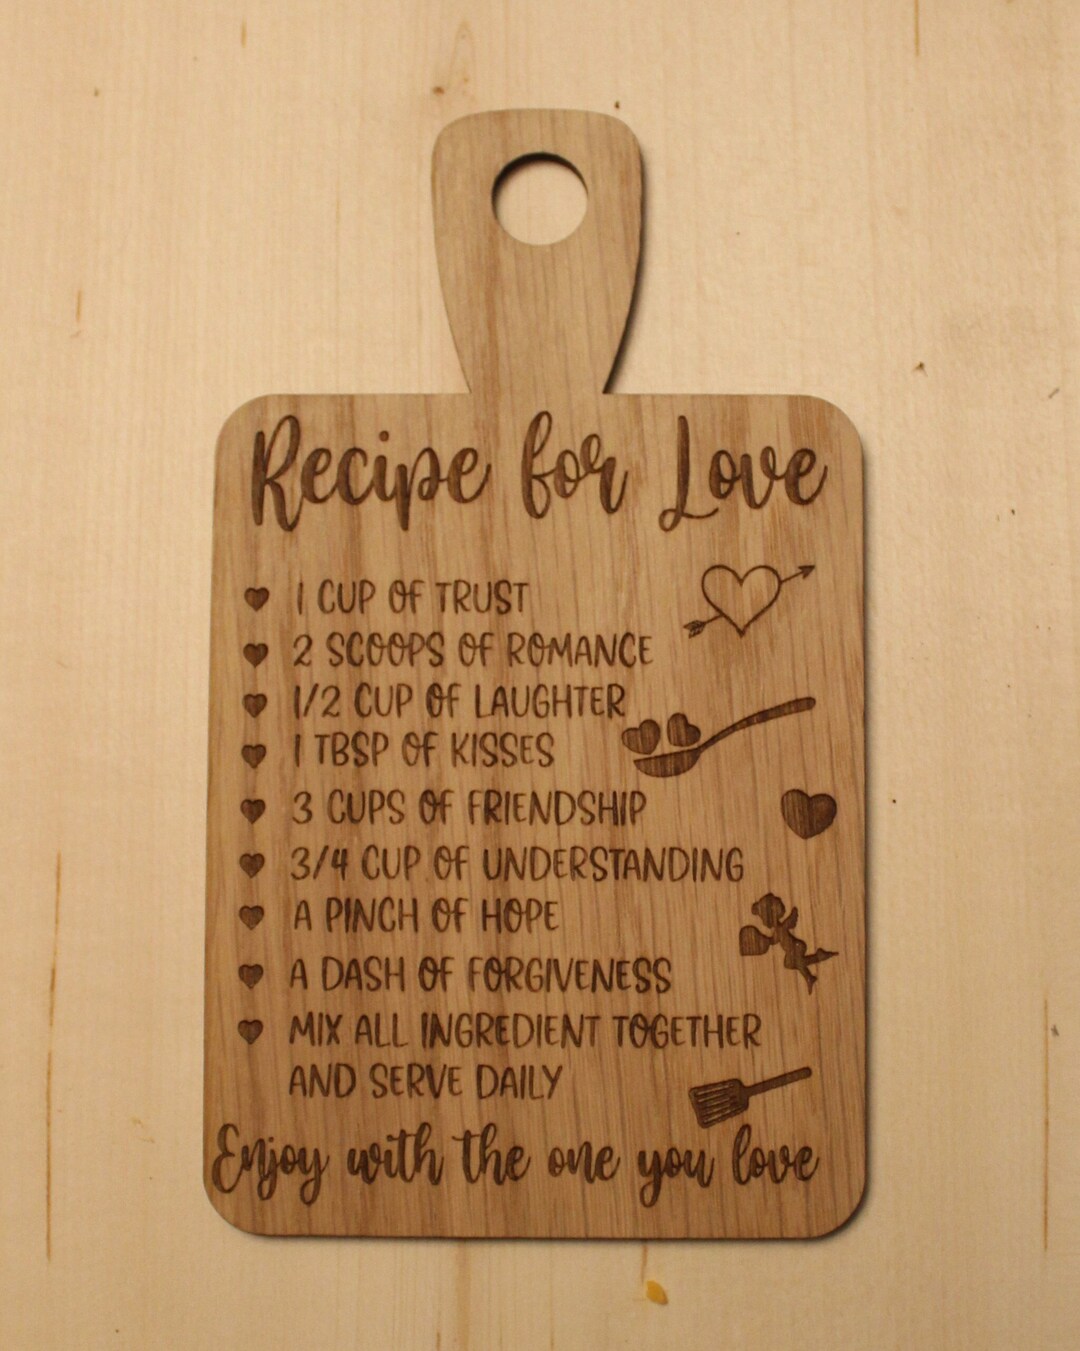 Recipe for Love
1 CUP OF TRUST
2 SCOOPS OF ROMANCE
1/2 CUP OF LAUGHTER
1 TBSP OF KISSES
3 CUPS OF FRIENDSHIP
3/4 CUP OF UNDERSTANDING
A PINCH OF HOPE
A DASH OF FORGIVENESS
MIX ALL INGREDIENT TOGETHER
AND SERVE DAILY
Enjoy with the one you love